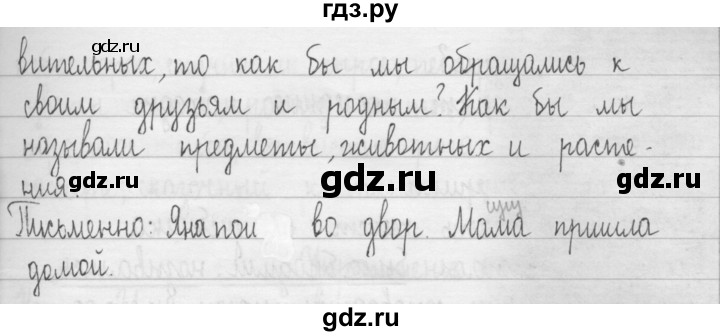 гдз.ру
gdz.ru gdz.ru
вительных, то как бы мы обращались к
своим друзьям и родным? Как бы мы
gdz.ru gdz.ru
называли предметы, животных и расте-
ния.
gdz.ru gdz.ru gdz.ru
Письменно: Яна во двор. Мама пришла
домой.
gdz.ru gdz.ru